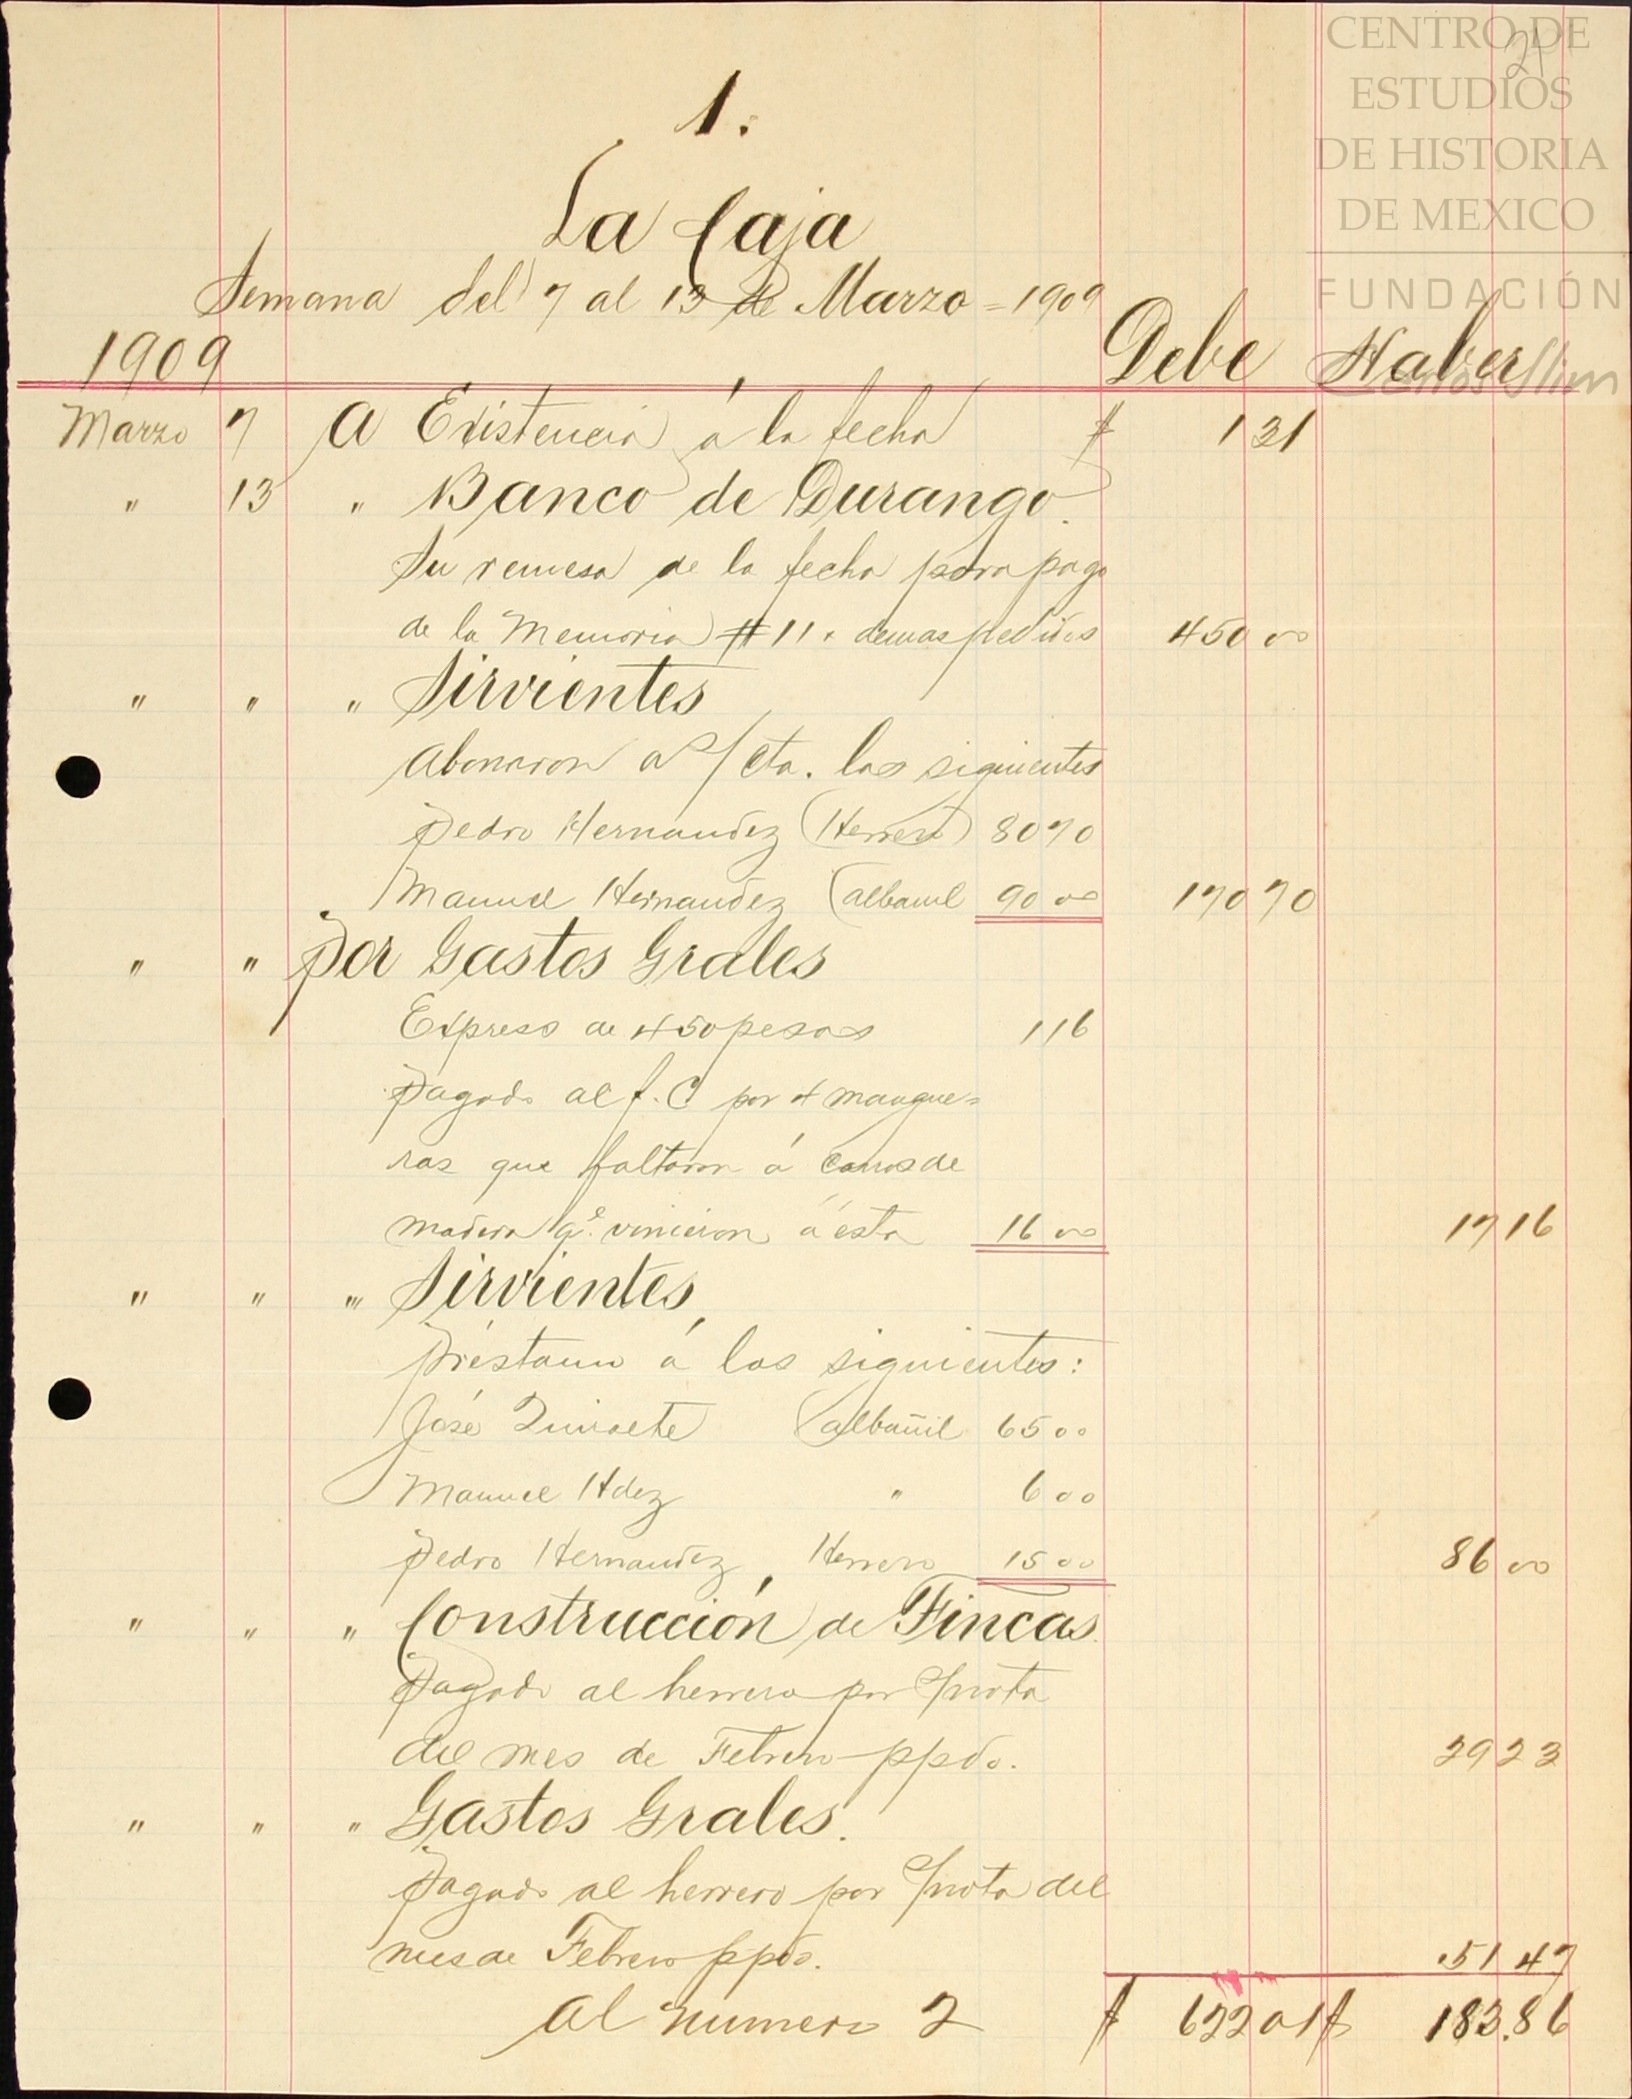 CENTRO DE
ESTUDIOS
DE HISTORIA
DE MEXICO
FUNDACIÓN
Carlos Slim
21
1.
La Caja
Semana del 7 al 13 de Marzo = 1909
1909 Debe Haber
Marzo 7 A Existencia á la fecha $ 1 31
" 13 " Banco de Durango.
Su remesa de la fecha para pago
de la Memoria #11 y demas pedidos 450 00
" " " Sirvientes
Abonaron a s/ cta. los siguientes
Pedro Hernandez (Herrero) 80 70
Manuel Hernandez (albanil 90 00 170 70
" " Por Gastos Grales
Expreso de 450 pesos 1 16
Pagado al F.C por 4 mangue=
ras que faltaron á carros de
madera qe. vinieron á esta 16 00 17 16
" " " Sirvientes,
Préstamo á los siguientes:
José (albañil 65 00
Manuel Hdez " 6 00
Pedro Hernandez, Herrero 15 00 86 00
" " " Construcción de Fincas.
Pagado al herrero por s/nota
del mes de Febrero ppdo. 29 23
" " " Gastos Grales.
Pagado al herrero por s/nota del
mes de Febrero ppdo. 51 47
Al numero 2 $ 622 01 $ 183.86